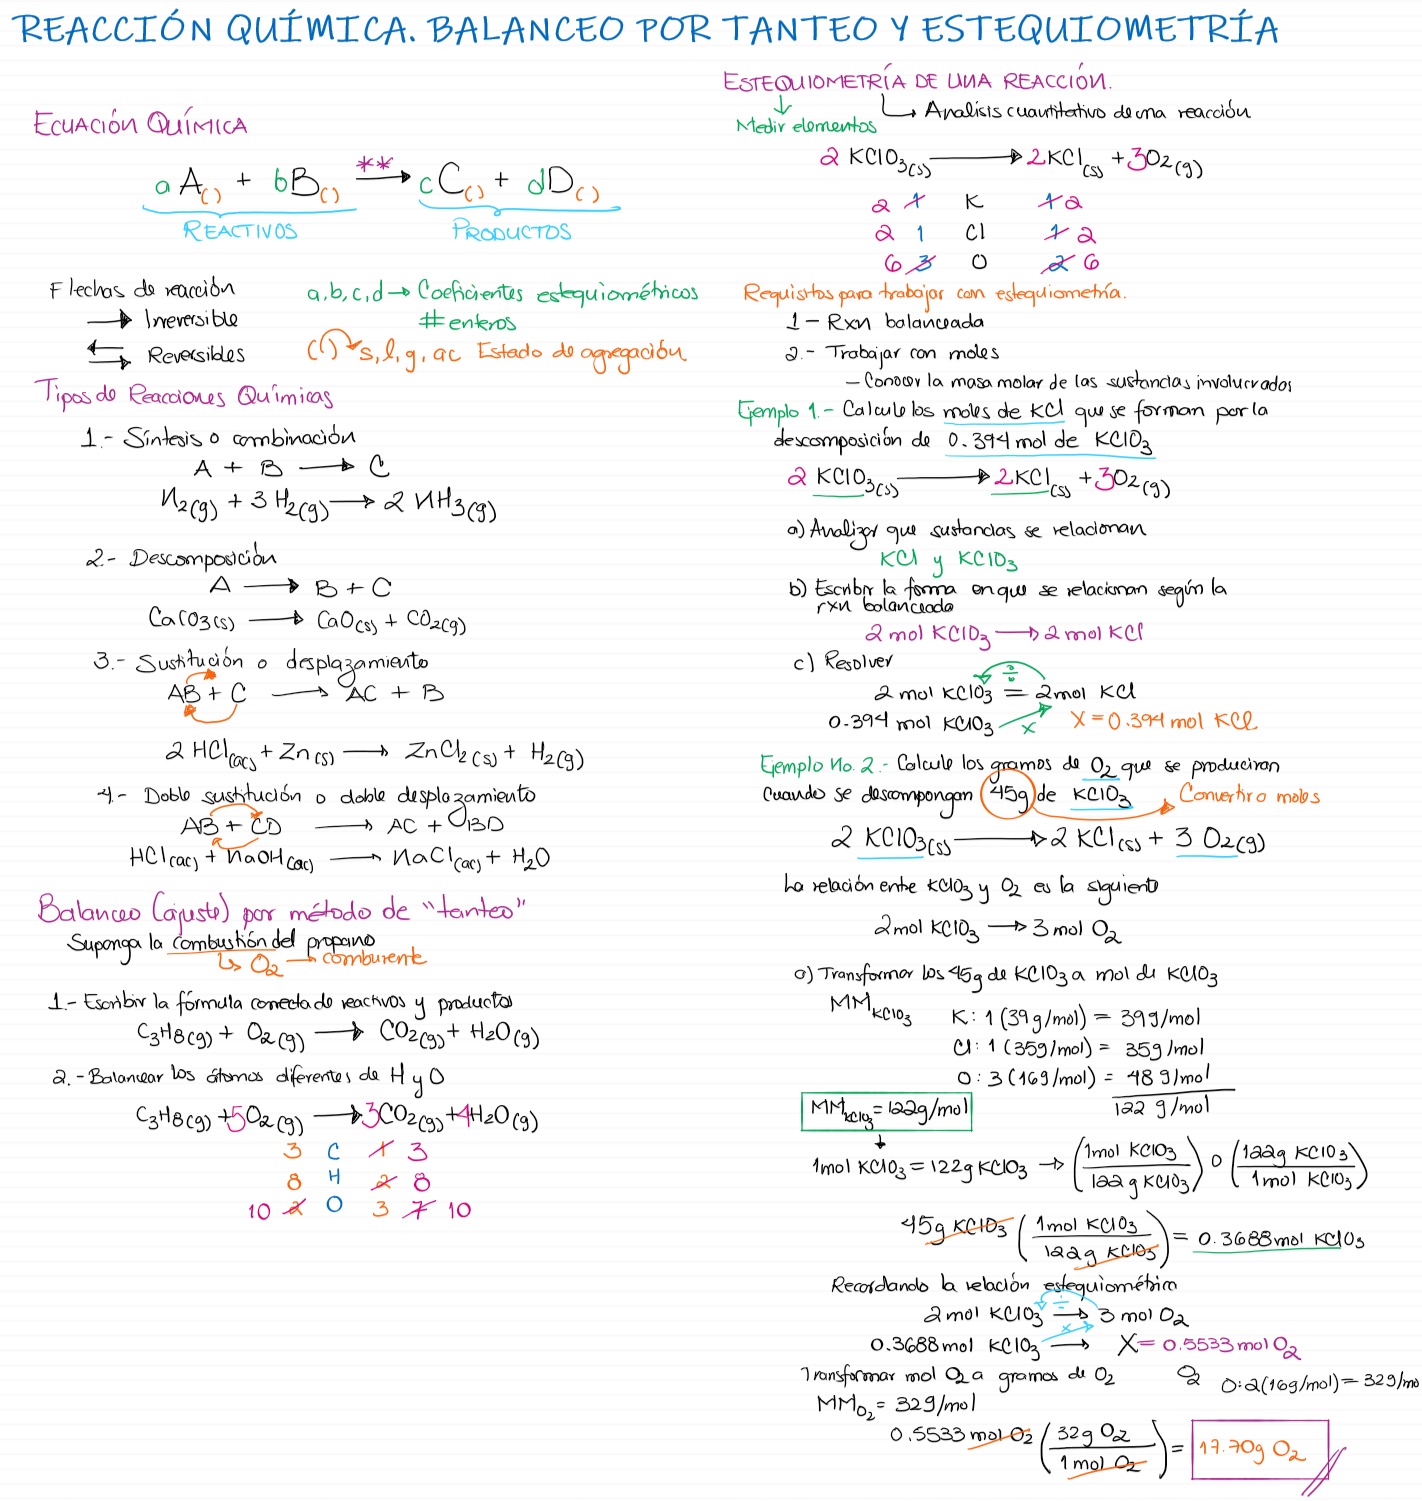 REACCIÓN QUÍMICA. BALANCEO POR TANTEO Y ESTEQUIOMETRÍA
ECUACIÓN QUÍMICA
**
aA( ) + bB( ) → cC( ) + dD( )
REACTIVOS PRODUCTOS
Flechas de reacción
→ Irreversible
⇆ Reversibles
a,b,c,d → Coeficientes estequiométricos
# enteros
( ) s, l, g, ac Estado de agregación
Tipos de Reacciones Químicas
1.- Síntesis o combinación
A + B → C
N2(g) + 3H2(g) → 2 NH3(g)
2.- Descomposición
A → B + C
CaCO3(s) → CaO(s) + CO2(g)
3.- Sustitución o desplazamiento
AB + C → AC + B
2 HCl(ac) + Zn(s) → ZnCl2(s) + H2(g)
4.- Doble sustitución o doble desplazamiento
AB + CD → AC + BD
HCl(ac) + NaOH(ac) → NaCl(ac) + H2O
Balanceo (ajuste) por método de "tanteo"
Suponga la combustión del propano
↳ O2 → comburente
1.- Escribir la fórmula correcta de reactivos y productos
C3H8(g) + O2(g) → CO2(g) + H2O(g)
2.- Balancear los átomos diferentes de H y O
C3H8(g) + 5O2(g) → 3CO2(g) + 4H2O(g)
3 C 1 3
8 H 2 8
10 2 O 3 7 10
ESTEQUIOMETRÍA DE UNA REACCIÓN.
↳ Analisis cuantitativo de una reacción
Medir elementos
2 KClO3(s) → 2KCl(s) + 3O2(g)
2 1 K 1 2
2 1 Cl 1 2
6 3 O 2 6
Requisitos para trabajar con estequiometría.
1- Rxn balanceada
2.- Trabajar con moles
- Conocer la masa molar de las sustancias involucradas
Ejemplo 1.- Calcule los moles de KCl que se forman por la
descomposición de 0.394 mol de KClO3
2 KClO3(s) → 2KCl(s) + 3O2(g)
a) Analizar que sustancias se relacionan
KCl y KClO3
b) Escribir la forma en que se relacionan según la
rxn balanceada
2 mol KClO3 → 2 mol KCl
c) Resolver
÷
2 mol KClO3 = 2mol KCl
0.394 mol KClO3 x X = 0.394 mol KCl
Ejemplo No. 2.- Calcule los gramos de O2 que se produciran
cuando se descompongan 45g de KClO3 Convertir a moles
2 KClO3(s) → 2 KCl(s) + 3 O2(g)
La relación entre KClO3 y O2 es la siguiente
2mol KClO3 → 3 mol O2
a) Transformar los 45g de KClO3 a mol de KClO3
MM KClO3 K: 1 (39 g/mol) = 39g/mol
Cl: 1 (35g/mol) = 35g/mol
O: 3 (16g/mol) = 48 g/mol
MM KClO3 = 122g/mol 122 g/mol
1mol KClO3 = 122g KClO3 → (1mol KClO3 / 122g KClO3) o (122g KClO3 / 1mol KClO3)
45g KClO3 (1mol KClO3 / 122g KClO3) = 0.3688mol KClO3
Recordando la relación estequiométrica
÷
2 mol KClO3 → 3 mol O2
x
0.3688mol KClO3 → X = 0.5533 mol O2
Transformar mol O2 a gramos de O2 O2 O: 2(16g/mol) = 32g/mo
MM O2 = 32g/mol
0.5533 mol O2 (32g O2 / 1 mol O2) = 17.70g O2